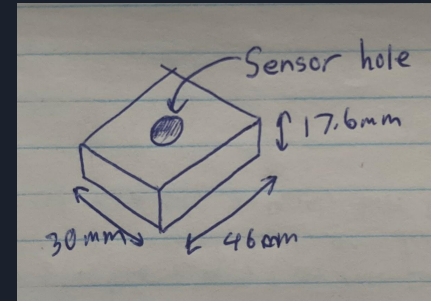 Sensor hole
17.6mm
30mm
46mm